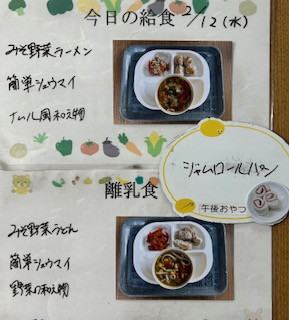 今日の給食 2/12(水)
みそ野菜ラーメン
簡単シュウマイ
ナムル風和え物
ジャムロールパン
午後おやつ
離乳食
みそ野菜うどん
簡単シュウマイ
野菜の和え物